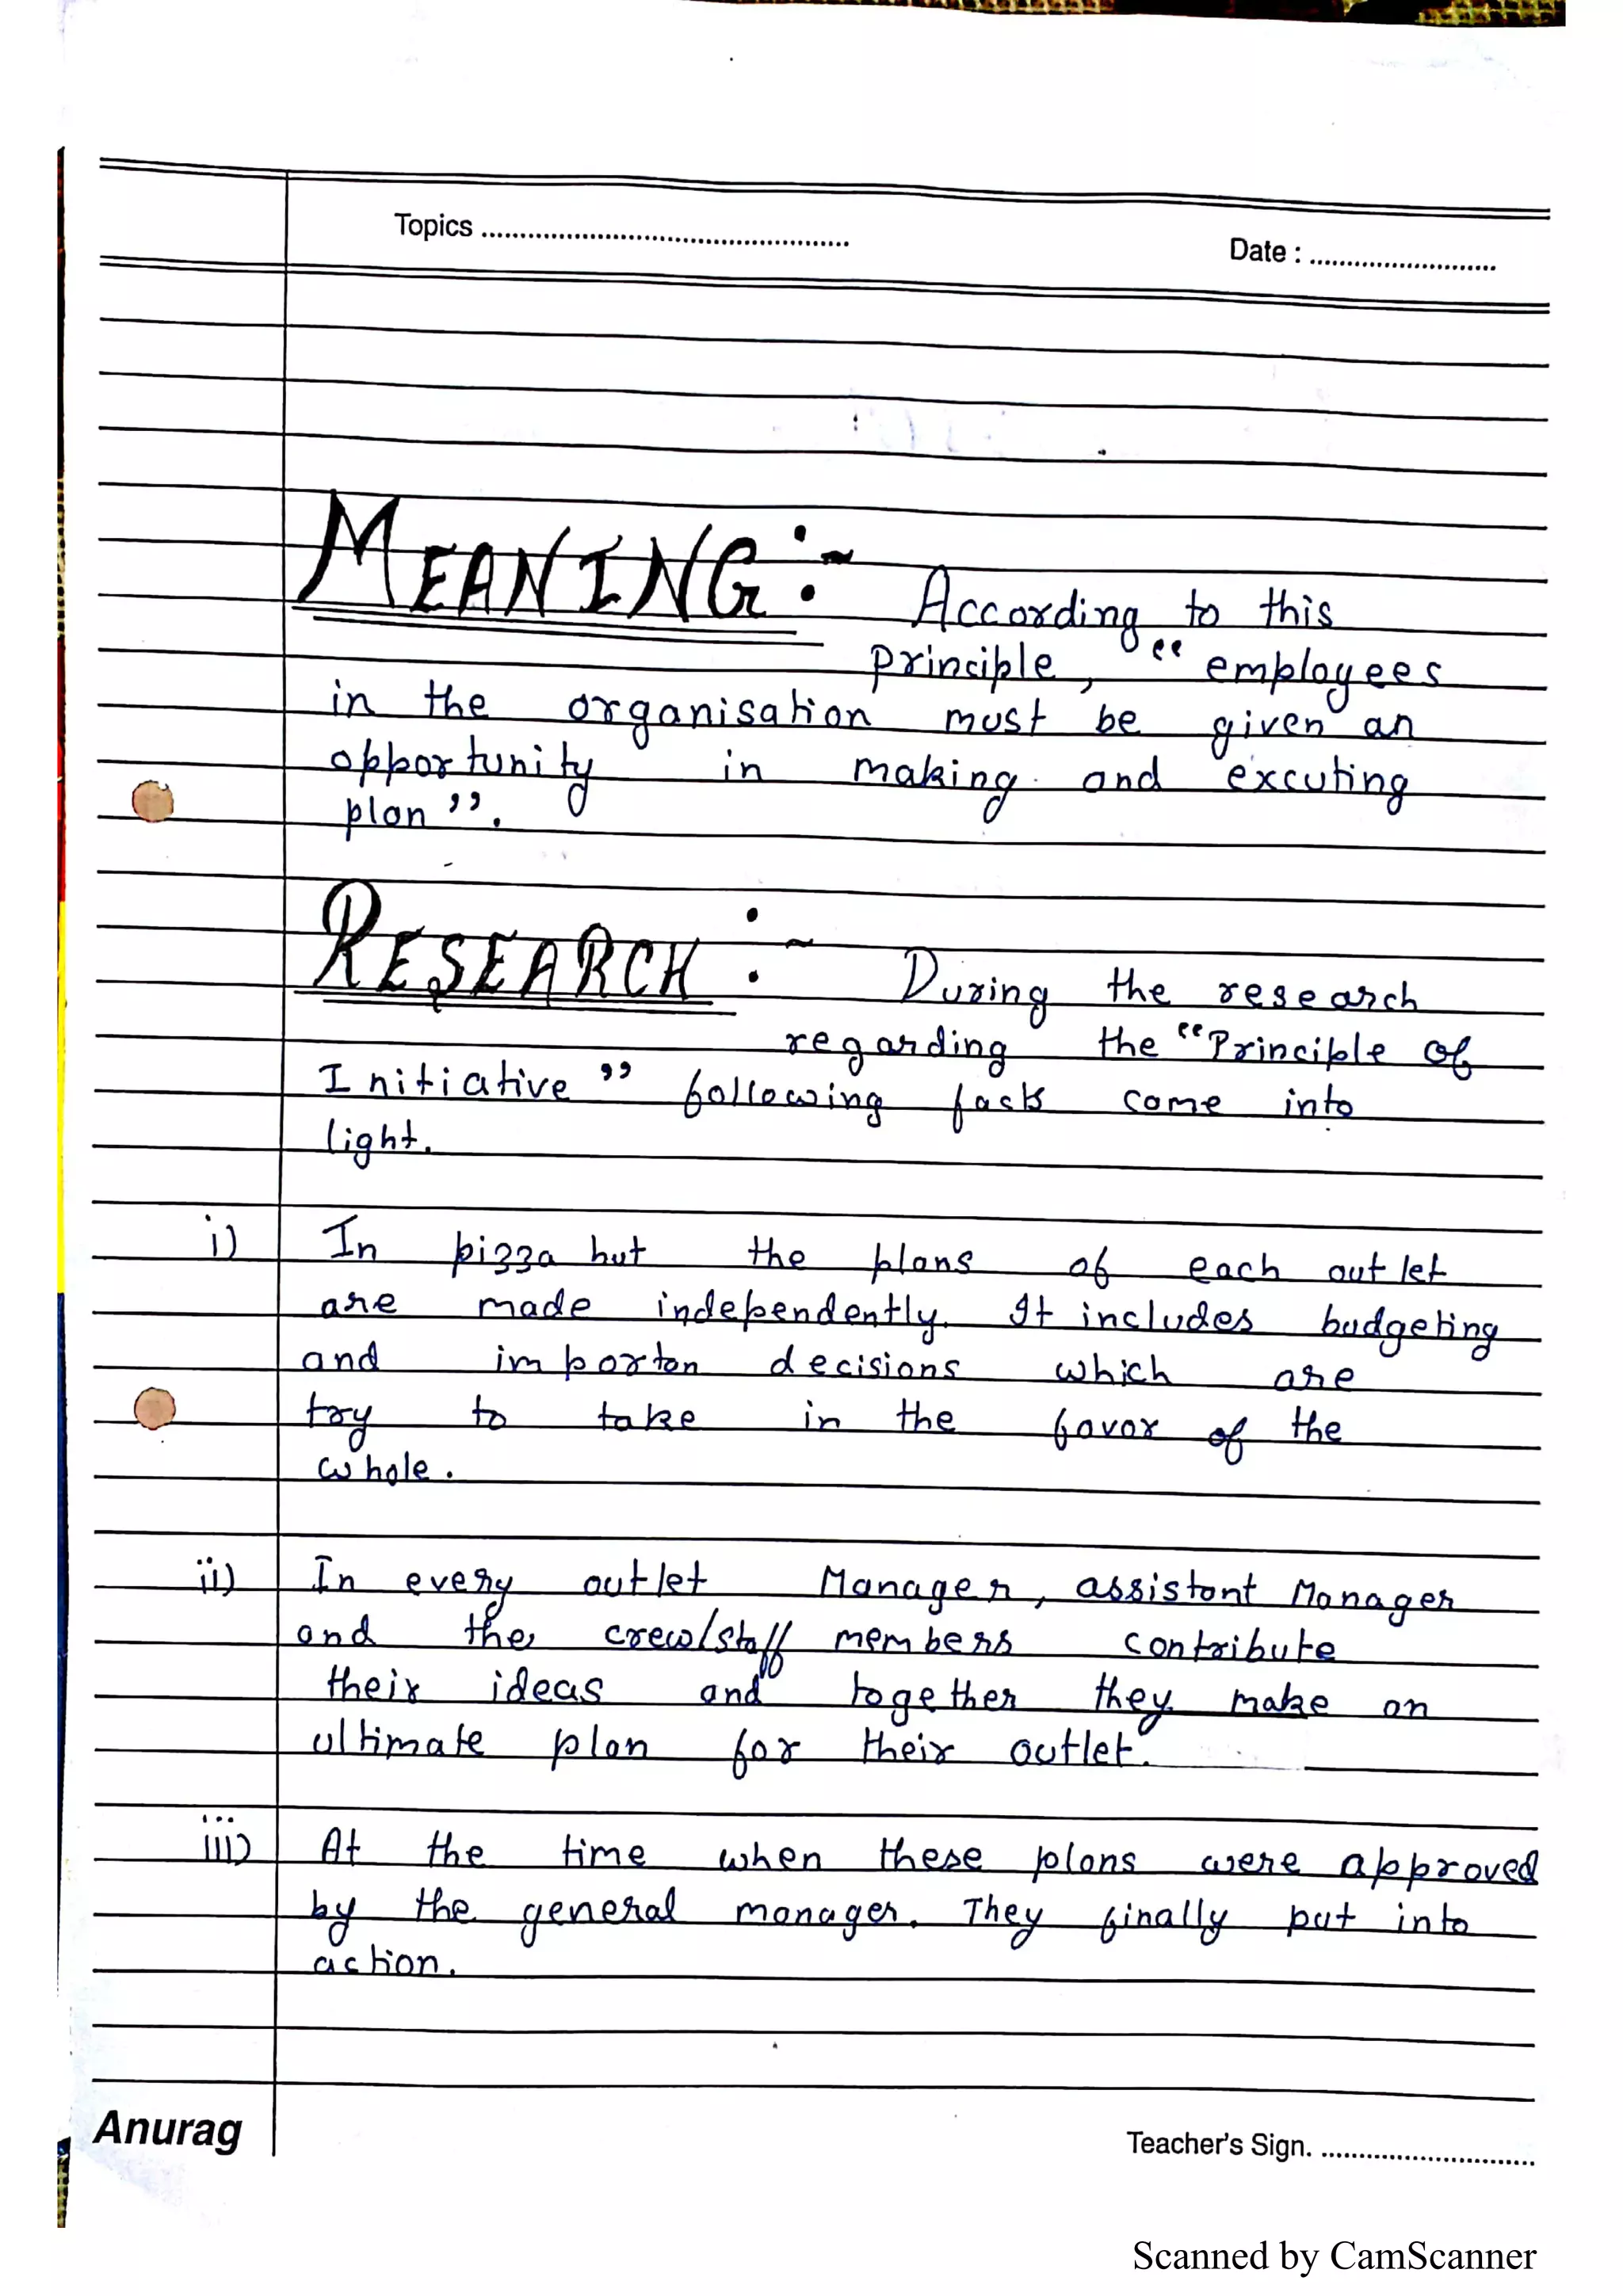 Topics ................................................ Date : .........................
MEANING :- According to this
principle, “ employees
in the organisation must be given an
opportunity in making and excuting
plan ”.
RESEARCH :- During the research
regarding the “Principle of
Initiative ” following facts come into
light.
i) In pizza hut the plans of each outlet
are made independently. It includes budgeting
and importan decisions which are
try to take in the favor of the
whole.
ii) In every outlet Manager, assistant Manager
and the crew/staff members contribute
their ideas and together they make an
ultimate plan for their outlet.
iii) At the time when these plans were approved
by the general manager. They finally put into
action.
Anurag Teacher's Sign. .............................
Scanned by CamScanner